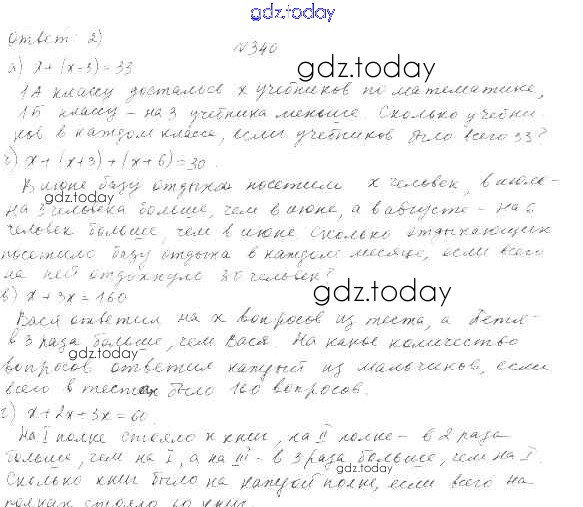 gdz.today
Ответ: 2)
N 340
а) x + (x-3) = 33
gdz.today
1А классу досталось x учебников по математике,
1Б классу - на 3 учебника меньше. Сколько учебни
ков в каждом классе, если учебников было всего 33?
б) x + (x+3) + (x+6) = 30.
В июне базу отдыха посетило x человек, в июле-
gdz.today
на 3 человека больше, чем в июне, а в августе - на 6
человек больше, чем в июне. Сколько отдыхающих
посетило базу отдыха в каждом месяце, если всего
на ней отдохнуло 30 человек?
в) x + 3x = 160
gdz.today
Вася ответил на x вопросов из теста, а Петя-
в 3 раза больше, чем Вася. На какое количество
вопросов ответил каждый из мальчиков, если
всего в тестах было 160 вопросов.
г) x + 2x + 3x = 60.
gdz.today
На I полке стояло x книг, на II полке - в 2 раза
больше, чем на I, а на III - в 3 раза больше, чем на I.
gdz.today
Сколько книг было на каждой полке, если всего на
полках стояло 60 книг.